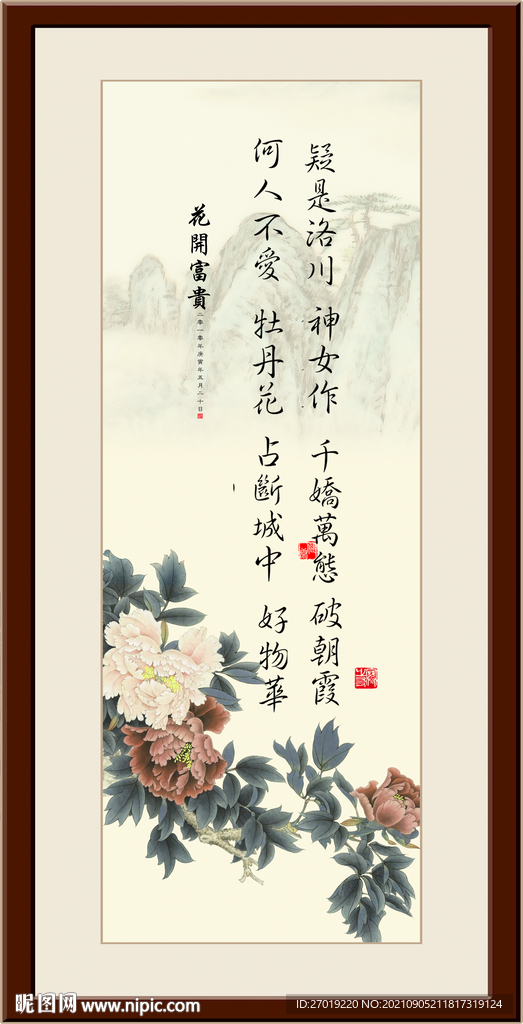 疑是洛川 神女作 千嬌萬態 破朝霞
何人不愛 牡丹花 占斷城中 好物華
花開富貴
二零一零年庚寅年五月二十日
昵图网 www.nipic.com
ID:27019220 NO:20210905211817319124